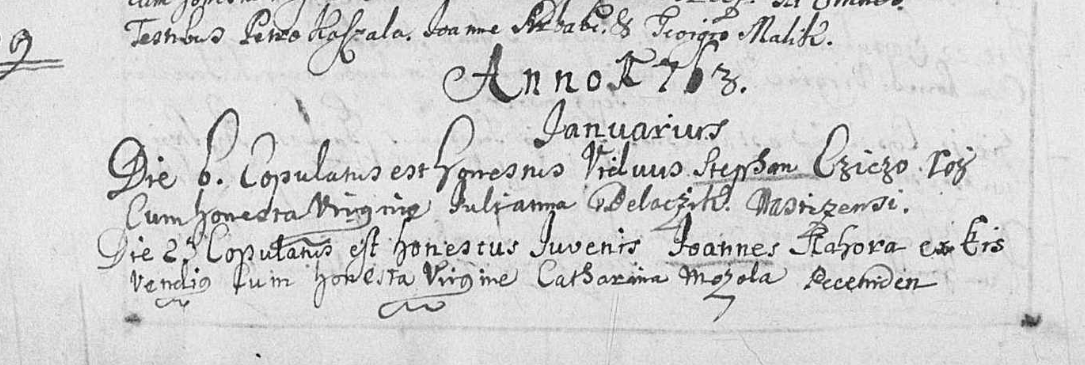 Testibus Petro Kaszala. Joanne & Georgio Malik.
Anno 1763.
Januarius
Die 6. Copulatus est honestus Viduus Stephan Cziczo
Cum honesta Virgine Julianna Belaczik.
Die 23 Copulatus est honestus Juvenis Joannes Kahora ex Kis
Vendig Cum honesta Virgine Catharina Mozola